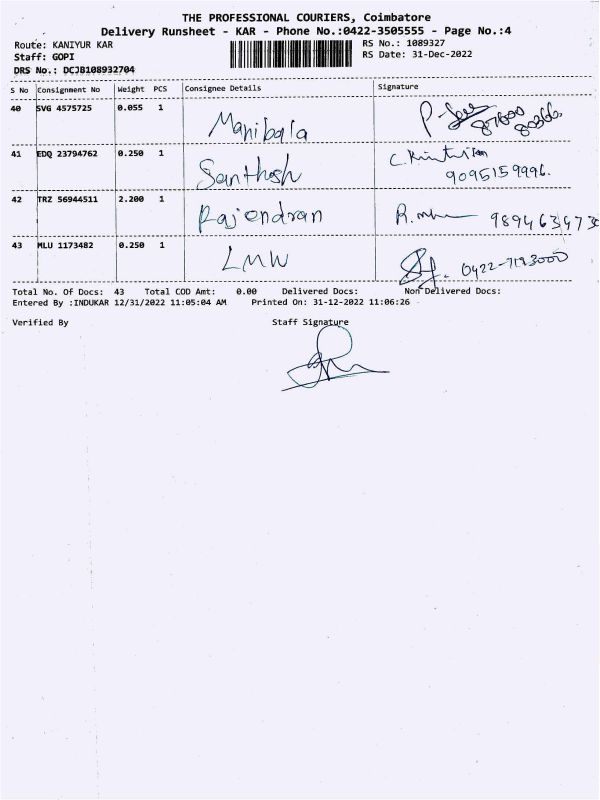 THE PROFESSIONAL COURIERS, Coimbatore
Delivery Runsheet - KAR - Phone No.:0422-3505555 - Page No.:4
Route: KANIYUR KAR RS No.: 1089327
Staff: GOPI RS Date: 31-Dec-2022
DRS No.: DCJB108932704
S No Consignment No Weight PCS Consignee Details Signature
40 SVG 4575725 0.055 1 Manibala
41 EDQ 23794762 0.250 1 Santhosh 9095159996.
42 TRZ 56944511 2.200 1 Rajendran
43 MLU 1173482 0.250 1 LMW
Total No. Of Docs: 43 Total COD Amt: 0.00 Delivered Docs: Non Delivered Docs:
Entered By :INDUKAR 12/31/2022 11:05:04 AM Printed On: 31-12-2022 11:06:26
Verified By Staff Signature